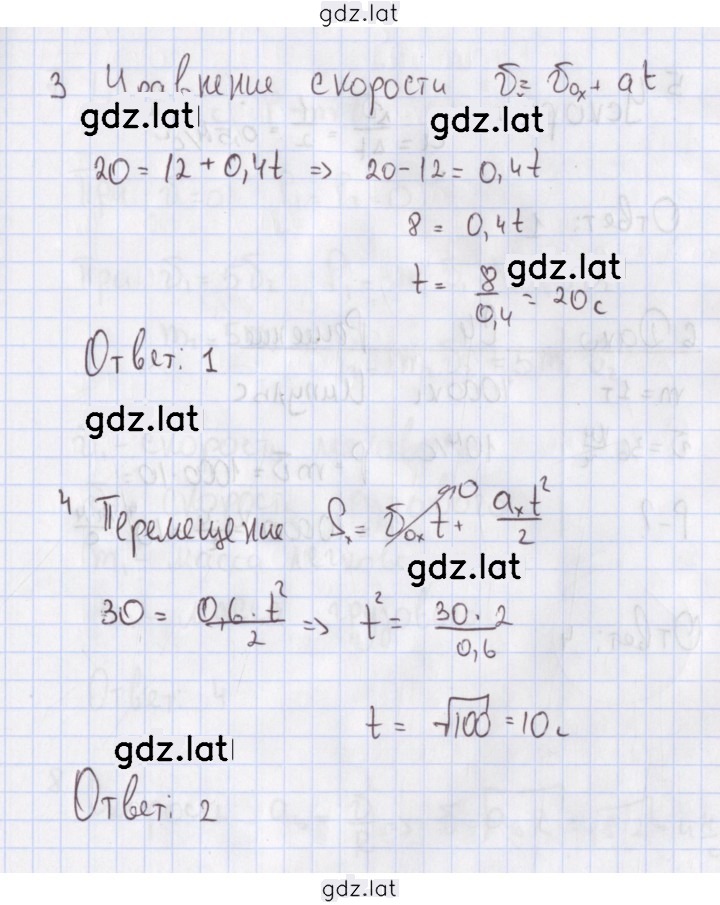 gdz.lat
3 Уравнение скорости υ = υ₀ₓ + at
gdz.lat gdz.lat
20 = 12 + 0,4t => 20-12 = 0,4t
8 = 0,4t
gdz.lat
t = 8/0,4 = 20 с
Ответ: 1
gdz.lat
4 Перемещение Sₓ = υ₀ₓt + aₓt²/2
gdz.lat
30 = 0,6·t²/2 => t² = 30·2/0,6
t = √100 = 10 с
gdz.lat
Ответ: 2
gdz.lat